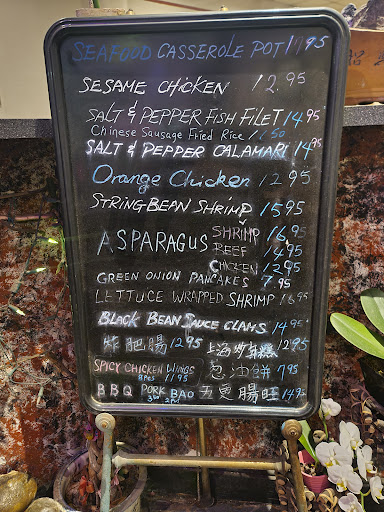 SEAFOOD CASSEROLE POT 17.95
SESAME CHICKEN 12.95
SALT & PEPPER FISH FILET 14.95
Chinese Sausage Fried Rice 11.50
SALT & PEPPER CALAMARI 14.95
Orange Chicken 12.95
STRING BEAN SHRIMP 15.95
ASPARAGUS SHRIMP 16.95
BEEF 14.95
CHICKEN 12.95
GREEN ONION PANCAKES 7.95
LETTUCE WRAPPED SHRIMP 16.95
BLACK BEAN SAUCE CLAMS 14.95
炸肥腸 12.95 上海 12.95
SPICY CHICKEN WINGS 8 Pcs 11.95 葱油餅 7.95
BBQ PORK BAO 五更腸旺 14.95